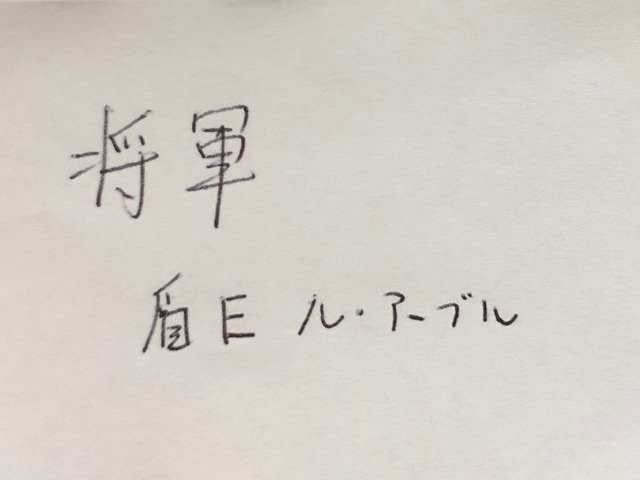 将軍
盾E ル・アーブル